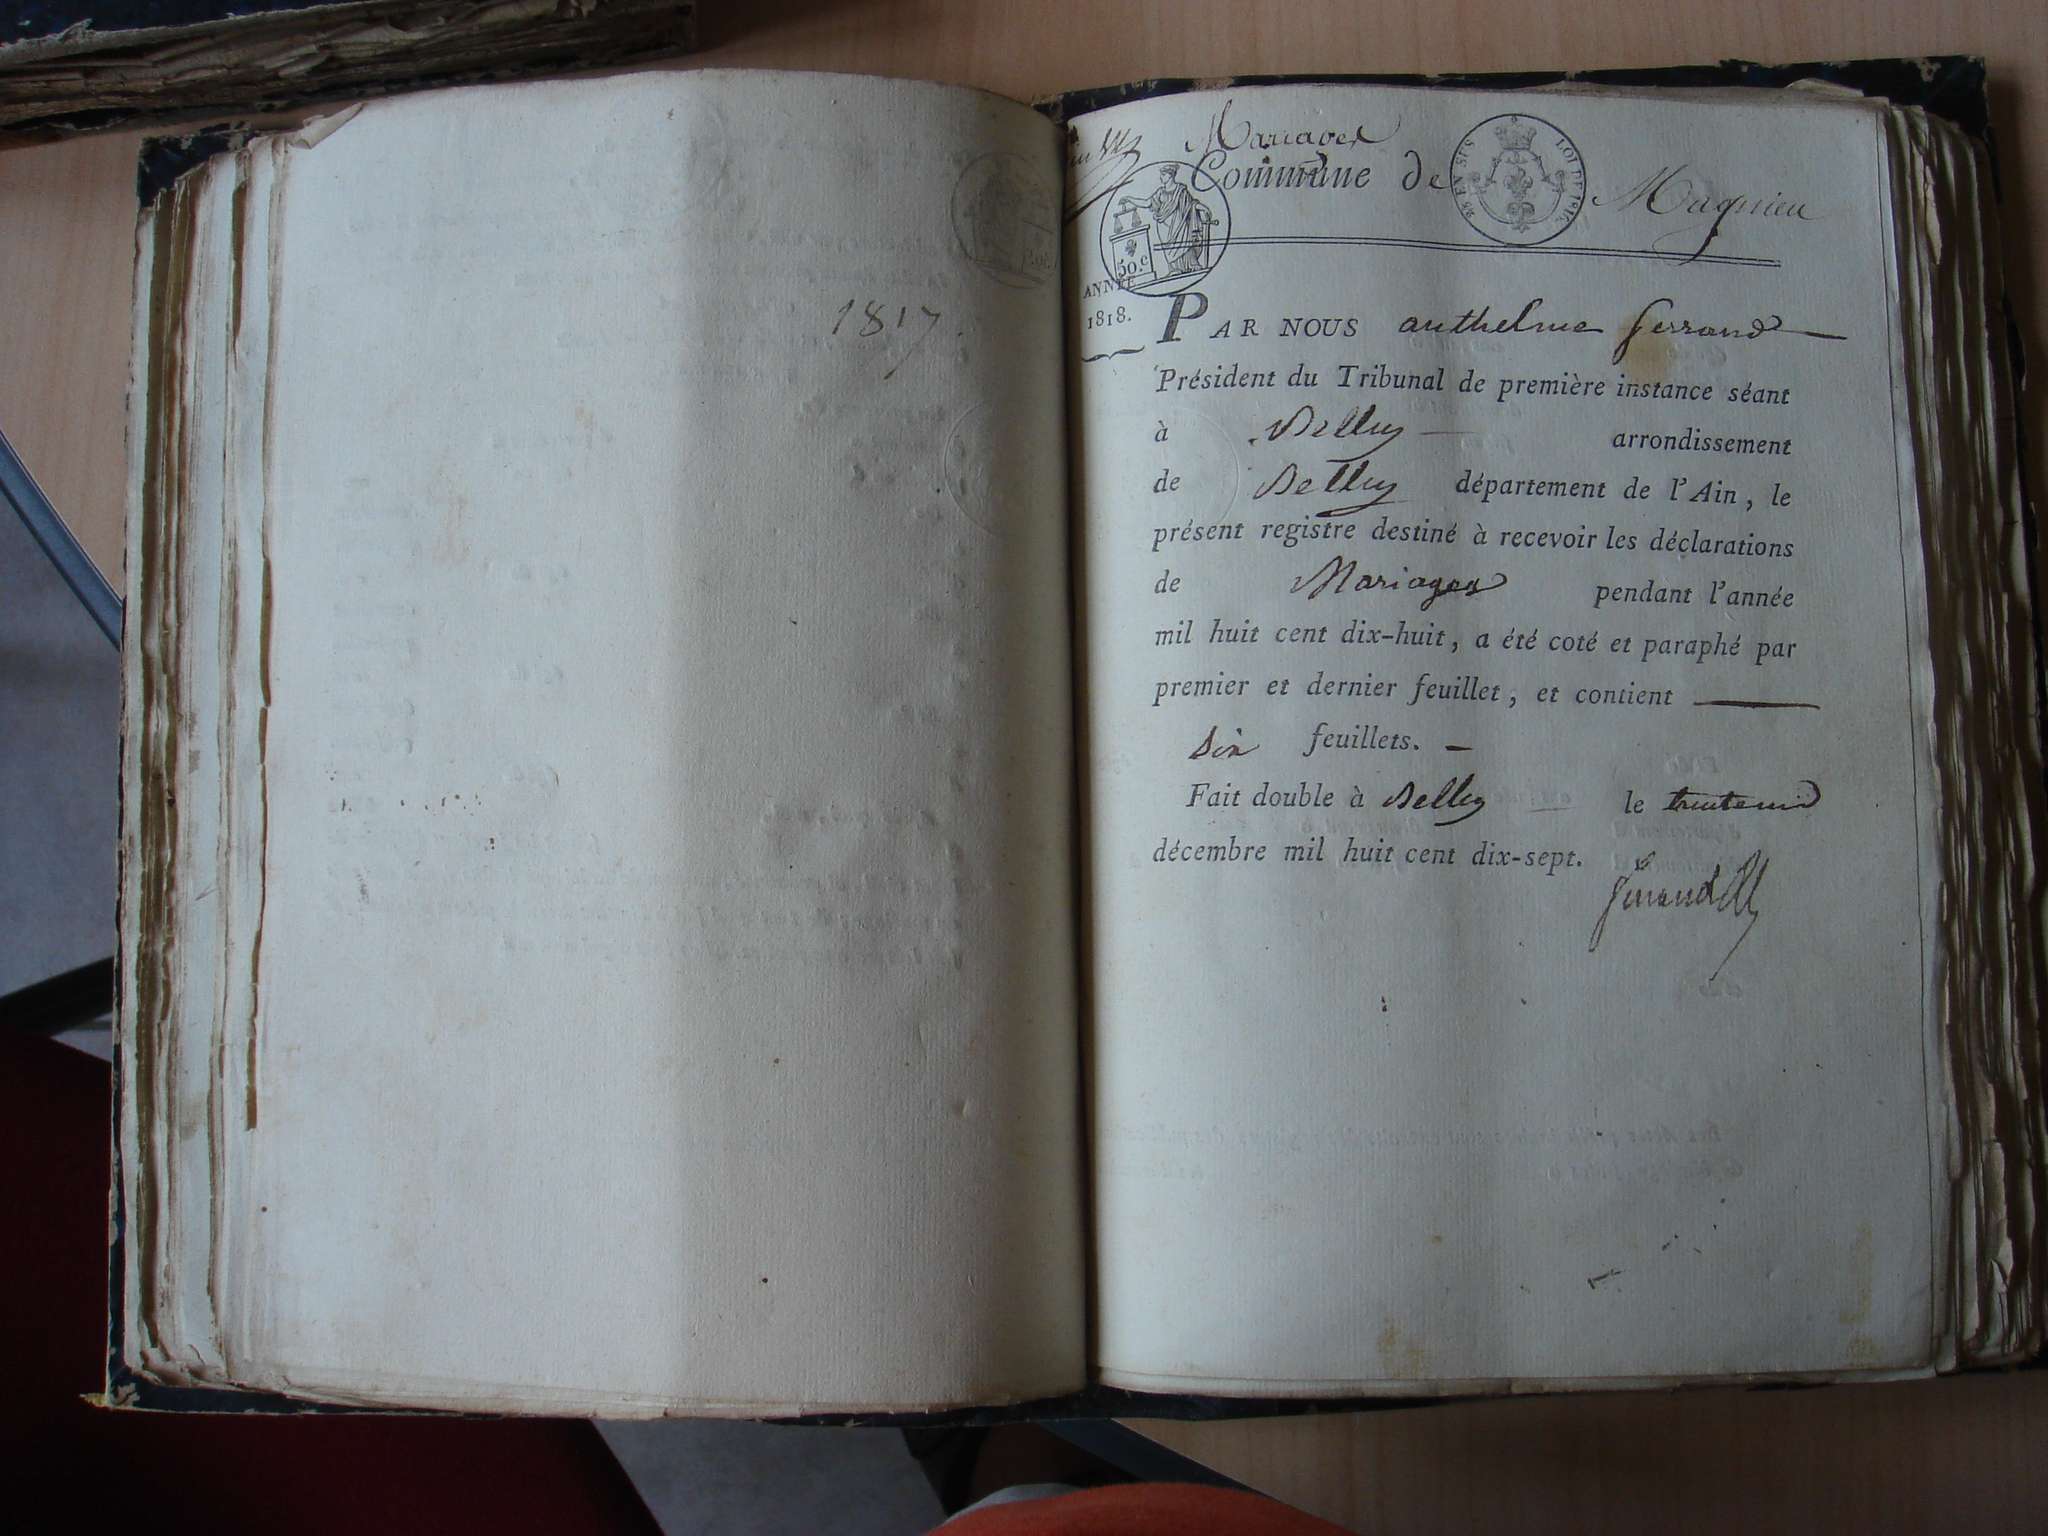 1817.
Mariages
Commune de Magnieu
25 EN SUS LOI DE 1816
50.c
ANNÉE
1818.
PAR NOUS anthelme ferrand
Président du Tribunal de première instance séant
à Belley arrondissement
de Belley département de l'Ain, le
présent registre destiné à recevoir les déclarations
de Mariages pendant l'année
mil huit cent dix-huit, a été coté et paraphé par
premier et dernier feuillet, et contient
Six feuillets.
Fait double à Belley le
décembre mil huit cent dix-sept.